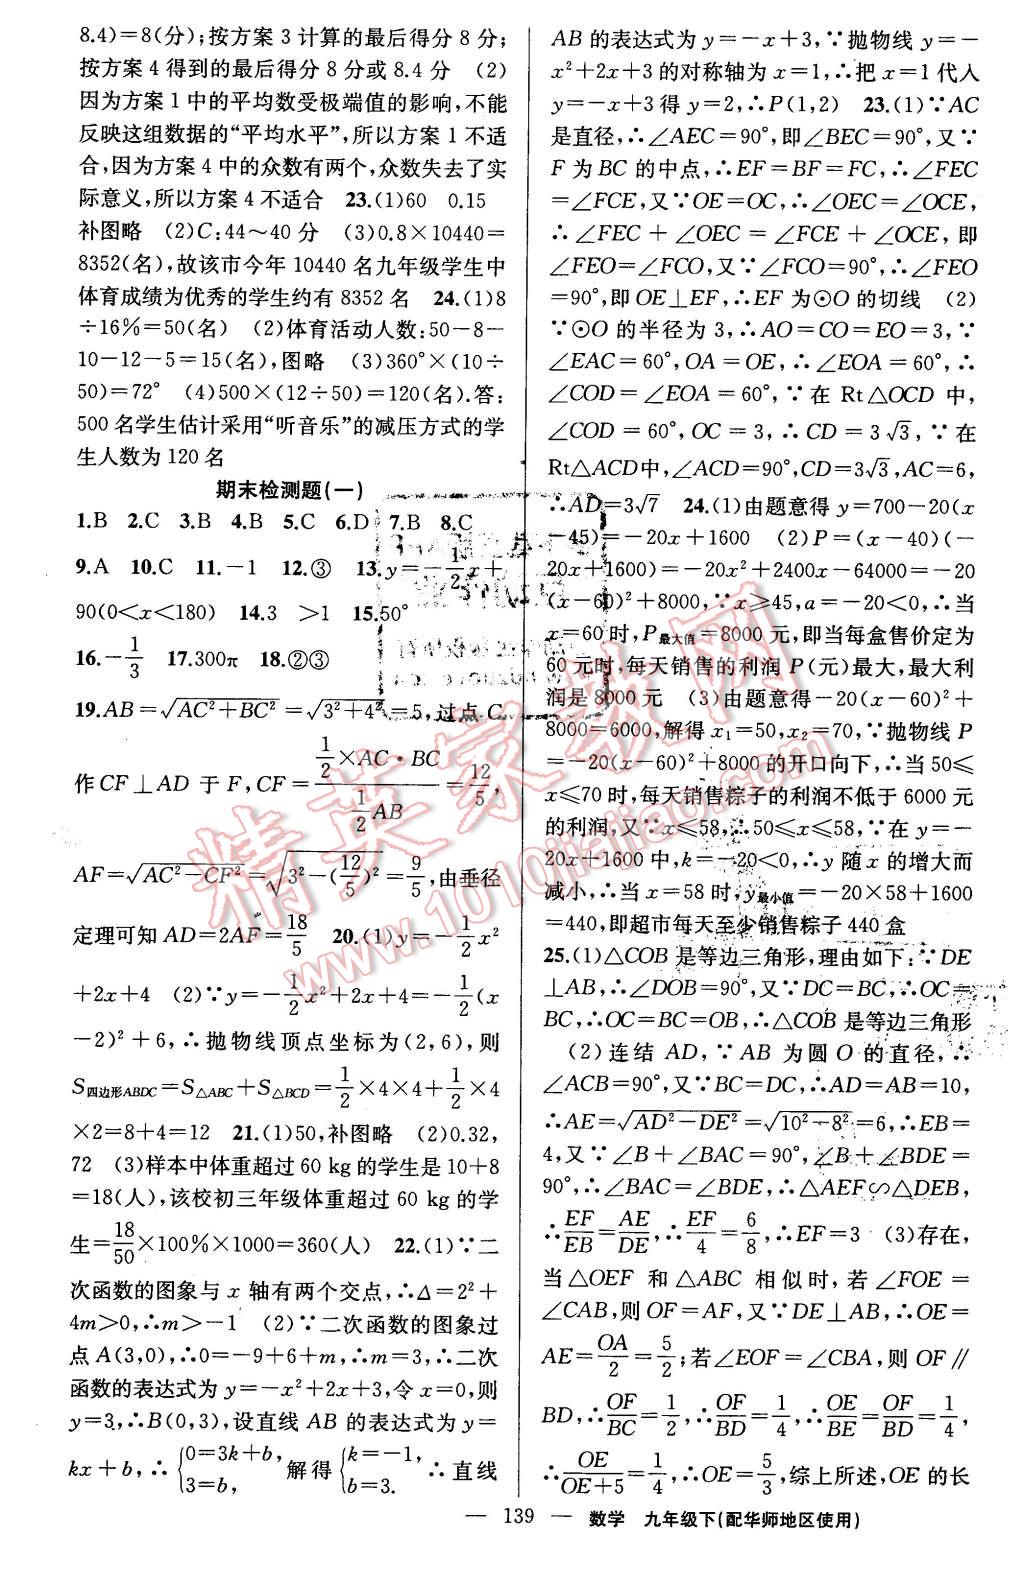 8.4)=8(分);按方案 3 计算的最后得分 8 分;
按方案 4 得到的最后得分 8 分或 8.4 分　(2)
因为方案 1 中的平均数受极端值的影响,不能
反映这组数据的“平均水平”,所以方案 1 不适
合,因为方案 4 中的众数有两个,众数失去了实
际意义,所以方案 4 不适合　23.(1)60　0.15
补图略　(2)C:44～40 分　(3)0.8×10440=
8352(名),故该市今年 10440 名九年级学生中
体育成绩为优秀的学生约有 8352 名　24.(1)8
÷16%=50(名)　(2)体育活动人数:50-8-
10-12-5=15(名),图略　(3)360°×(10÷
50)=72°　(4)500×(12÷50)=120(名).答:
500 名学生估计采用“听音乐”的减压方式的学
生人数为 120 名
期末检测题(一)
1.B　2.C　3.B　4.B　5.C　6.D　7.B　8.C
9.A　10.C　11.-1　12.③　13.y=-1/2x+
90(0<x<180)　14.3　>1　15.50°
16.-1/3　17.300π　18.②③
19.AB=√(AC²+BC²)=√(3²+4²)=5,过点 C
作 CF⊥AD 于 F,CF=(1/2×AC·BC)/(1/2AB)=12/5,
AF=√(AC²-CF²)=√(3²-(12/5)²)=9/5,由垂径
定理可知 AD=2AF=18/5　20.(1)y=-1/2x²
+2x+4　(2)∵y=-1/2x²+2x+4=-1/2(x
-2)²+6,∴抛物线顶点坐标为(2,6),则
S四边形ABDC=S△ABC+S△BCD=1/2×4×4+1/2×4
×2=8+4=12　21.(1)50,补图略　(2)0.32,
72　(3)样本中体重超过 60 kg 的学生是 10+8
=18(人),该校初三年级体重超过 60 kg 的学
生=18/50×100%×1000=360(人)　22.(1)∵二
次函数的图象与 x 轴有两个交点,∴Δ=2²+
4m>0,∴m>-1　(2)∵二次函数的图象过
点 A(3,0),∴0=-9+6+m,∴m=3,∴二次
函数的表达式为 y=-x²+2x+3,令 x=0,则
y=3,∴B(0,3),设直线 AB 的表达式为 y=
kx+b,∴{0=3k+b, 3=b, 解得{k=-1, b=3. ∴直线
AB 的表达式为 y=-x+3,∵抛物线 y=-
x²+2x+3 的对称轴为 x=1,∴把 x=1 代入
y=-x+3 得 y=2,∴P(1,2)　23.(1)∵AC
是直径,∴∠AEC=90°,即∠BEC=90°,又∵
F 为 BC 的中点,∴EF=BF=FC,∴∠FEC
=∠FCE,又∵OE=OC,∴∠OEC=∠OCE,
∴∠FEC+∠OEC=∠FCE+∠OCE,即
∠FEO=∠FCO,又∵∠FCO=90°,∴∠FEO
=90°,即 OE⊥EF,∴EF 为⊙O 的切线　(2)
∵⊙O 的半径为 3,∴AO=CO=EO=3,∵
∠EAC=60°,OA=OE,∴∠EOA=60°,∴
∠COD=∠EOA=60°,∵在 Rt△OCD 中,
∠COD=60°,OC=3,∴CD=3√3,∵在
Rt△ACD中,∠ACD=90°,CD=3√3,AC=6,
∴AD=3√7　24.(1)由题意得 y=700-20(x
-45)=-20x+1600　(2)P=(x-40)(-
20x+1600)=-20x²+2400x-64000=-20
(x-60)²+8000,∵x≥45,a=-20<0,∴当
x=60 时,P最大值=8000 元,即当每盒售价定为
60 元时,每天销售的利润 P(元)最大,最大利
润是 8000 元　(3)由题意得-20(x-60)²+
8000=6000,解得 x₁=50,x₂=70,∵抛物线 P
=-20(x-60)²+8000 的开口向下,∴当 50≤
x≤70 时,每天销售粽子的利润不低于 6000 元
的利润,又∵x≤58,∴50≤x≤58,∵在 y=-
20x+1600 中,k=-20<0,∴y 随 x 的增大而
减小,∴当 x=58 时,y最小值=-20×58+1600
=440,即超市每天至少销售粽子 440 盒
25.(1)△COB 是等边三角形,理由如下:∵DE
⊥AB,∴∠DOB=90°,又∵DC=BC,∴OC=
BC,∴OC=BC=OB,∴△COB 是等边三角形
(2)连结 AD,∵AB 为圆 O 的直径,∴
∠ACB=90°,又∵BC=DC,∴AD=AB=10,
∴AE=√(AD²-DE²)=√(10²-8²)=6,∴EB=
4,又∵∠B+∠BAC=90°,∠B+∠BDE=
90°,∴∠BAC=∠BDE,∴△AEF∽△DEB,
∴EF/EB=AE/DE,∴EF/4=6/8,∴EF=3　(3)存在,
当△OEF 和△ABC 相似时,若∠FOE=
∠CAB,则 OF=AF,又∵DE⊥AB,∴OE=
AE=OA/2=5/2;若∠EOF=∠CBA,则 OF∥
BD,∴OF/BC=1/2,∴OF/BD=1/4,∴OE/BE=OF/BD=1/4,
∴OE/(OE+5)=1/4,∴OE=5/3,综上所述,OE 的长
— 139 —　数学　九年级下(配华师地区使用)
精英家教网
www.1010jiajiao.com